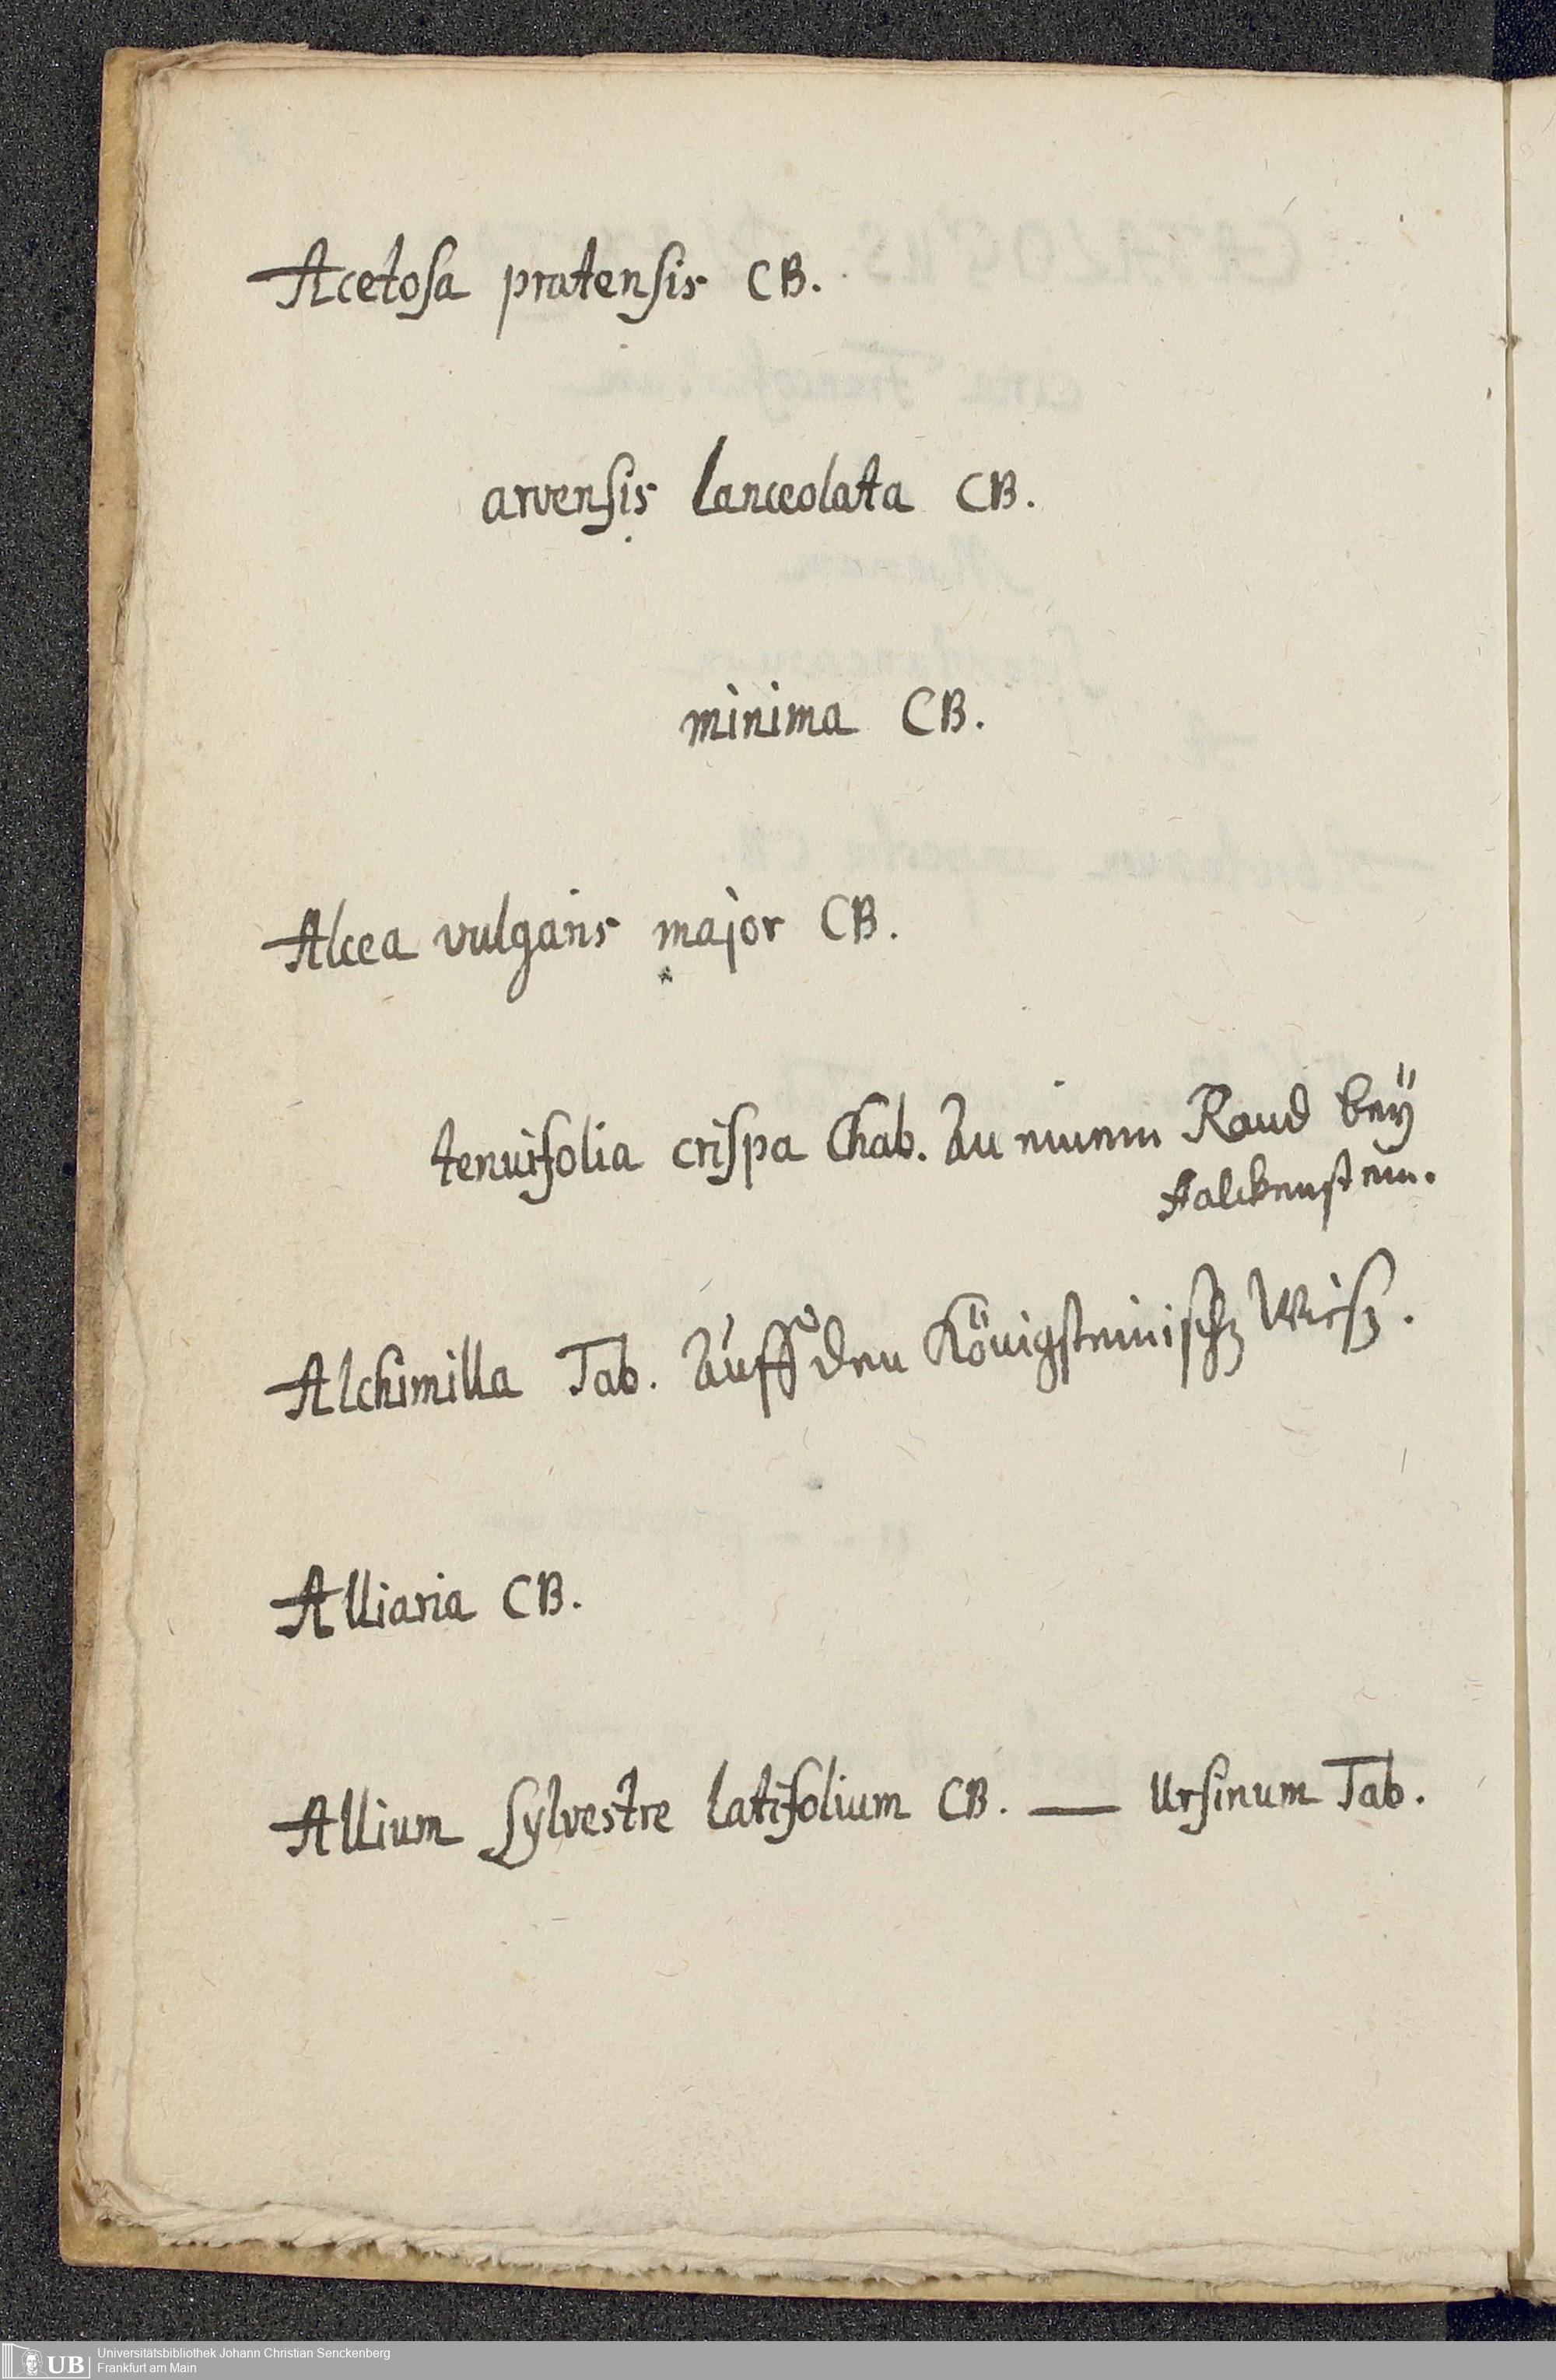 Acetosa pratensis CB.
arvensis lanceolata CB.
minima CB.
Alcea vulgaris major CB.
tenuifolia crispa Chab. An einem Rand beÿ
Falckenstein.
Alchimilla Tab. Auff den Königsteinisch Wiß.
Alliaria CB.
Allium sylvestre latifolium CB. — Ursinum Tab.
UB Universitätsbibliothek Johann Christian Senckenberg
Frankfurt am Main